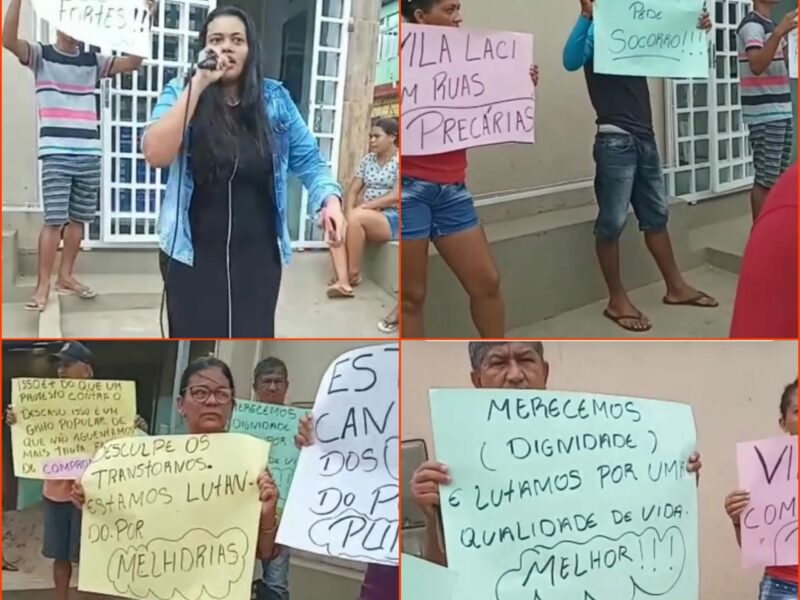 FORTES!!
VILA LACI
M RUAS
PRECÁRIAS
PEDE
SOCORRO!!!
ISSO É + DO QUE UM
PROTESTO CONTRA O
DESCASO ISSO É UM
GRITO POPULAR DE
QUE NÃO AGUENTAMOS
MAIS TANTA
DE COMPRO
DESCULPE OS
TRANSTORNOS.
ESTAMOS LUTAN-
DO.POR
MELHORIAS
MERECEMOS
DIGNIDADE
ES
CAN
DOS
DO P
PU
MERECEMOS
(DIGNIDADE)
E LUTAMOS POR UMA
QUALIDADE DE VIDA.
MELHOR!!!
VI
COM